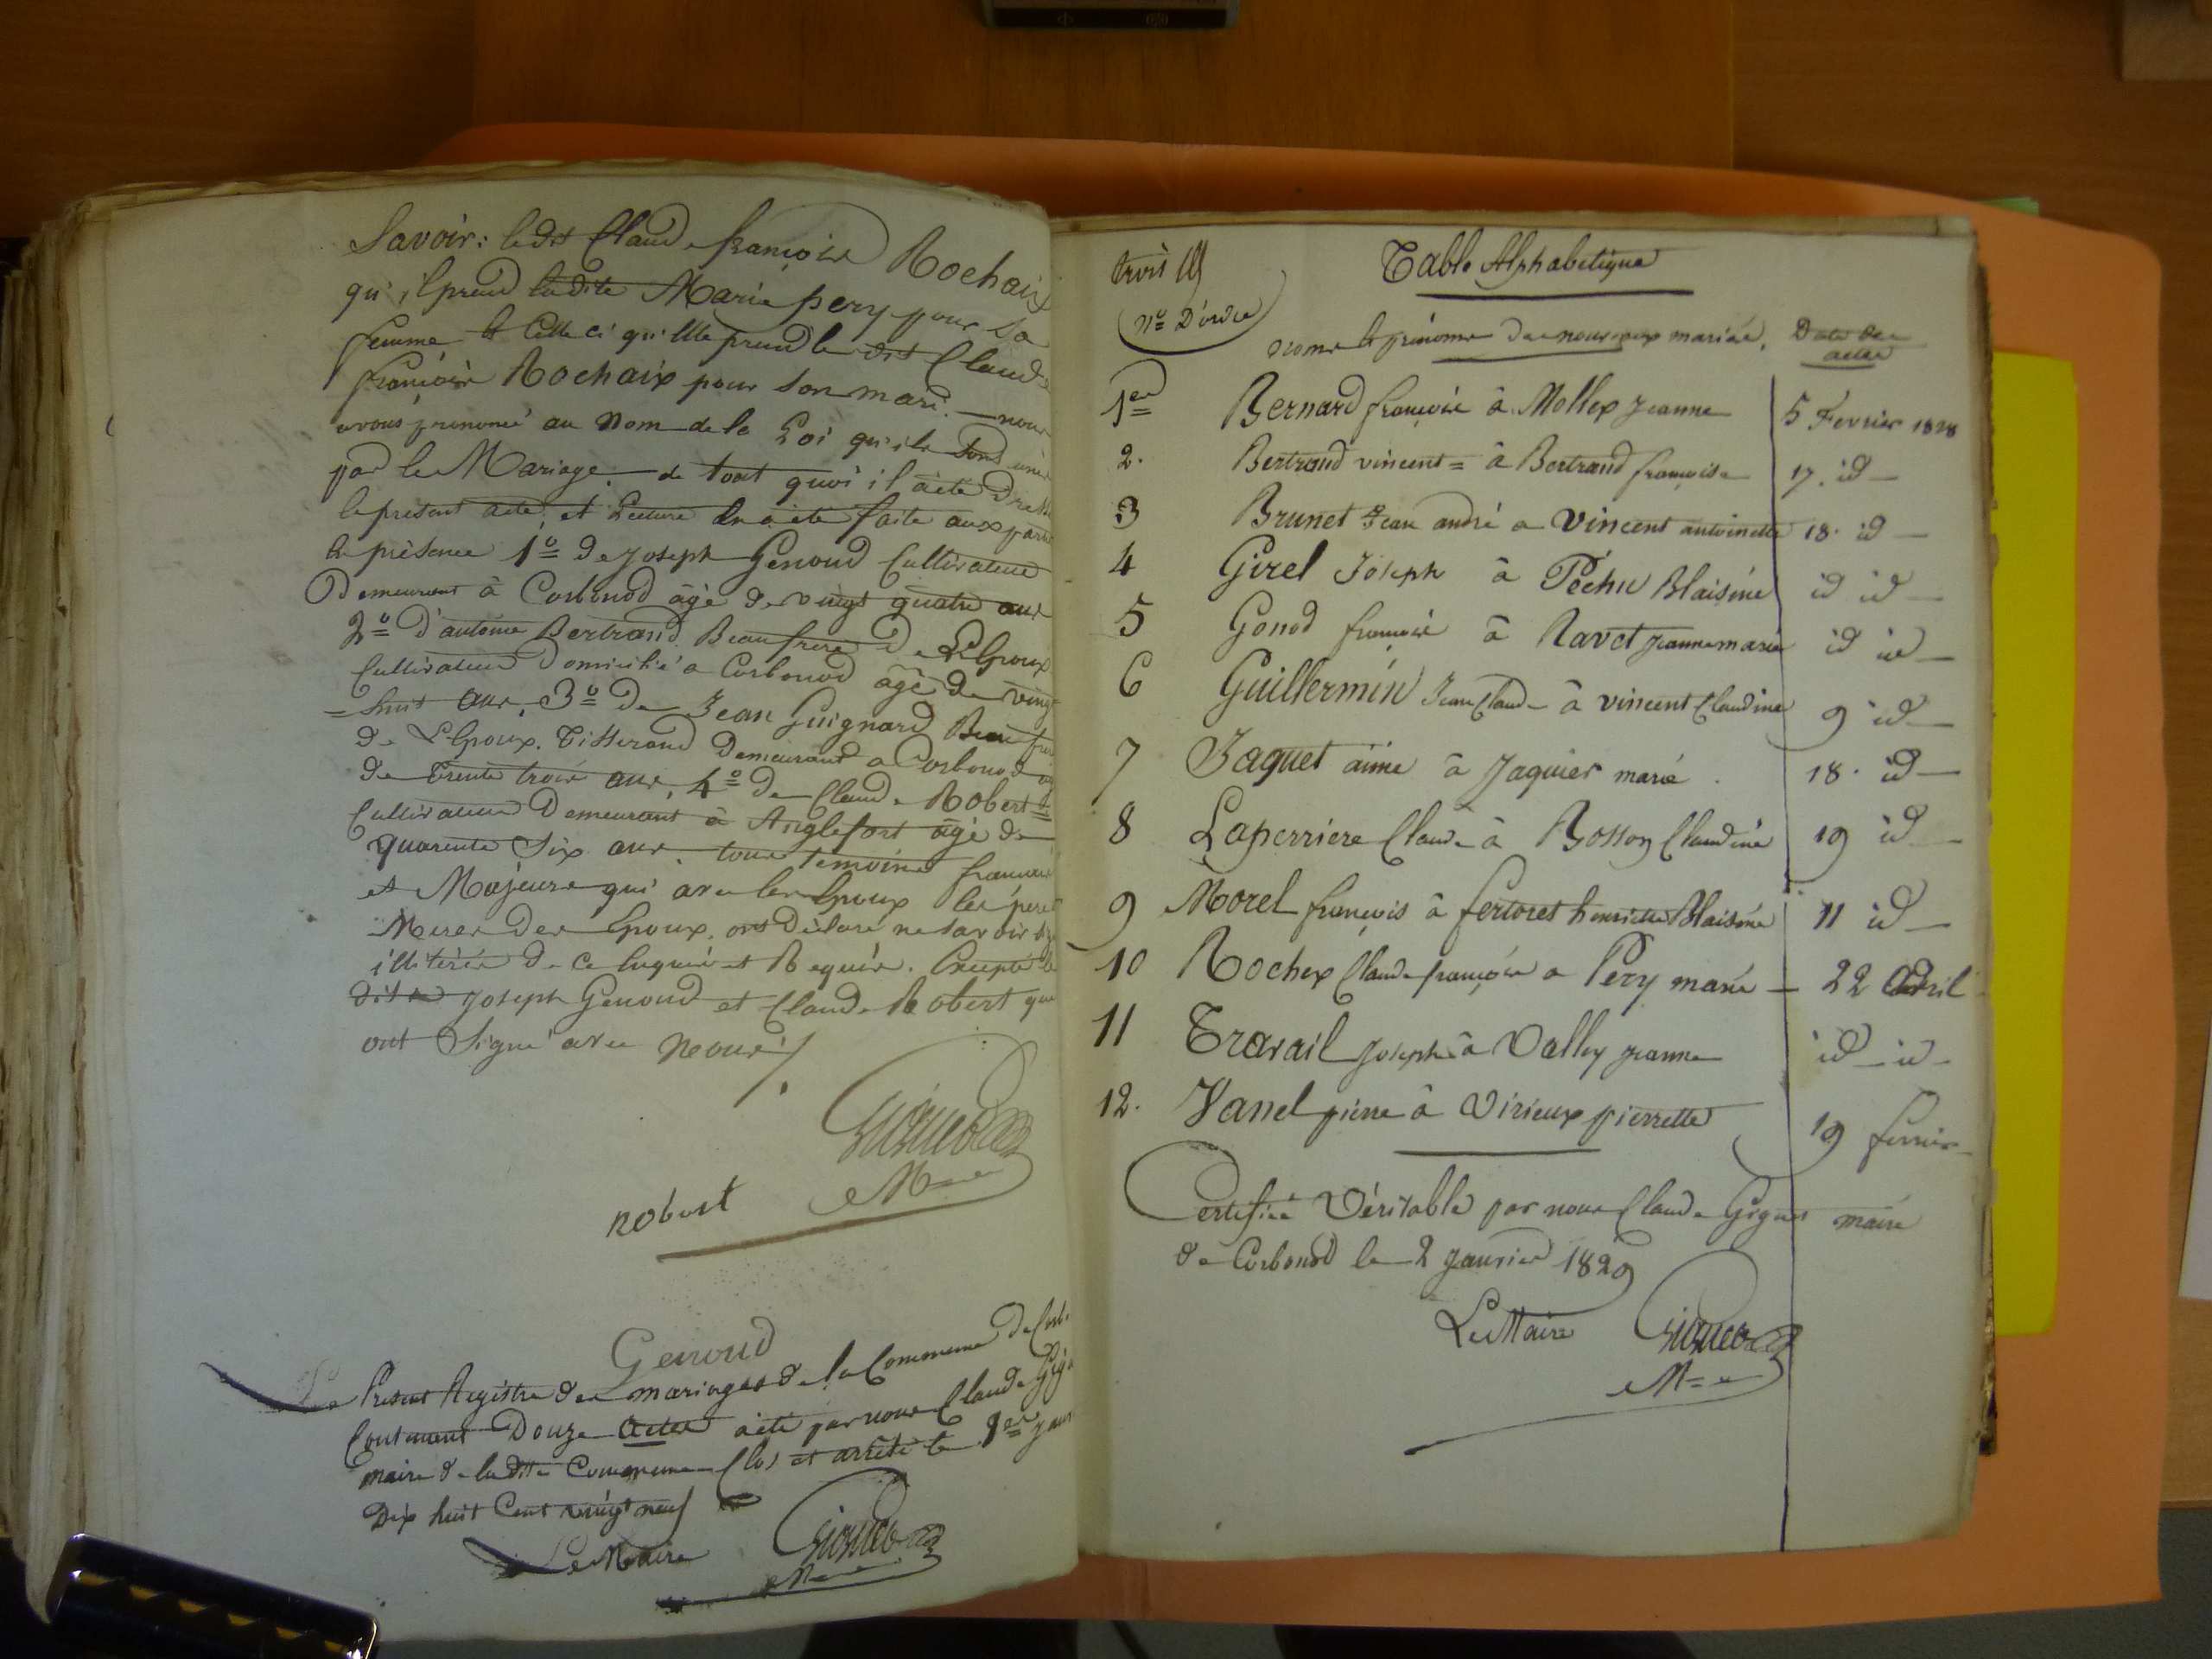 Savoir: ledit Claude françois Rochaix
qu'il prend ladite Marie pery pour Sa
femme et Celle ci qu'Elle prend le dit Claude
françois Rochaix pour Son mari. — nous
avons prononcé au Nom de la Loi qu'ils Sont unis
par le Mariage. de tout quoi il a été Dressé
le présent acte, et Lecture En a été faite aux parties
En présence 1º De Joseph Genoud Cultivateur
Demeurant à Corbonod âgé de vingt quatre ans
2º D'antoine Bertrand Beaufrere De L'Epoux
Cultivateur Domicilié a Corbonod âgé de vingt
= huit ans, 3º De Jean Guignard Beau frere
De L'Epoux. Tisserand Demeurant a Corbonod
de Trente trois ans, 4º De Claude Robert =
Cultivateur Demeurant à Anglefort âgé de
quarente Six ans. tous temoins francais
et Majeurs qui avec les Epoux les peres
Meres des Epoux, ont Déclaré ne Savoir
illitérés De Ce Enquis et Requis. Excepté le
dit Joseph Genoud et Claude Robert qui
ont Signé avec Nous /.
Gignet
M=re
robert
Genoud
Le Présent Registre des mariages de la Commune de Corb
Contenant Douze Actes a été par nous Claude Gig
maire de ladite Commune Clos et arrêté le 1er janv
Dix huit Cent vingt neuf
Le Maire Gignet
Mre
trois
Table Alphabétique
Nº D'ordre
noms et prénoms des nouveaux mariés. Date des
actes
1er Bernard françois à Mollex jeanne 5 Fevrier 1828
2. Bertrand vincent = à Bertrand françoise 17. id —
3 Brunet Jean andré a Vincent antoinette 18. id —
4 Girel Joseph à Péchu Blaisine id id —
5 Gonod françois à Ravet jeanne marie id id —
6 Guillermin Jean Claude à vincent Claudine 9 id —
7 Jaquet aimé à Jaquier marie . 18. id —
8 Laperriere Claude à Rosson Claudine 19 id —
9 Morel françois à fertoret henriette Blaisine 11 id —
10 Rochex Claude françois a Pery marie — 22 Avril
11 Travail Joseph à Vallex jeanne id — id —
12. Vanel pierre à Virieux pierrette 19 fevrier
Certifiée Véritable par nous Claude Gignet maire
de Corbonod le 2 Janvier 1829
Le Maire Gignet
M=re